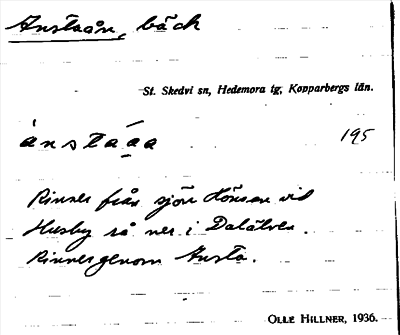 Anstaån, bäck
St. Skedvi sn, Hedemora tg, Kopparbergs län.
ànstáaa 195
Rinner från sjön Hönsan vid
Husby så ner i Dalälven.
Rinner genom Ansta.
OLLE HILLNER, 1936.